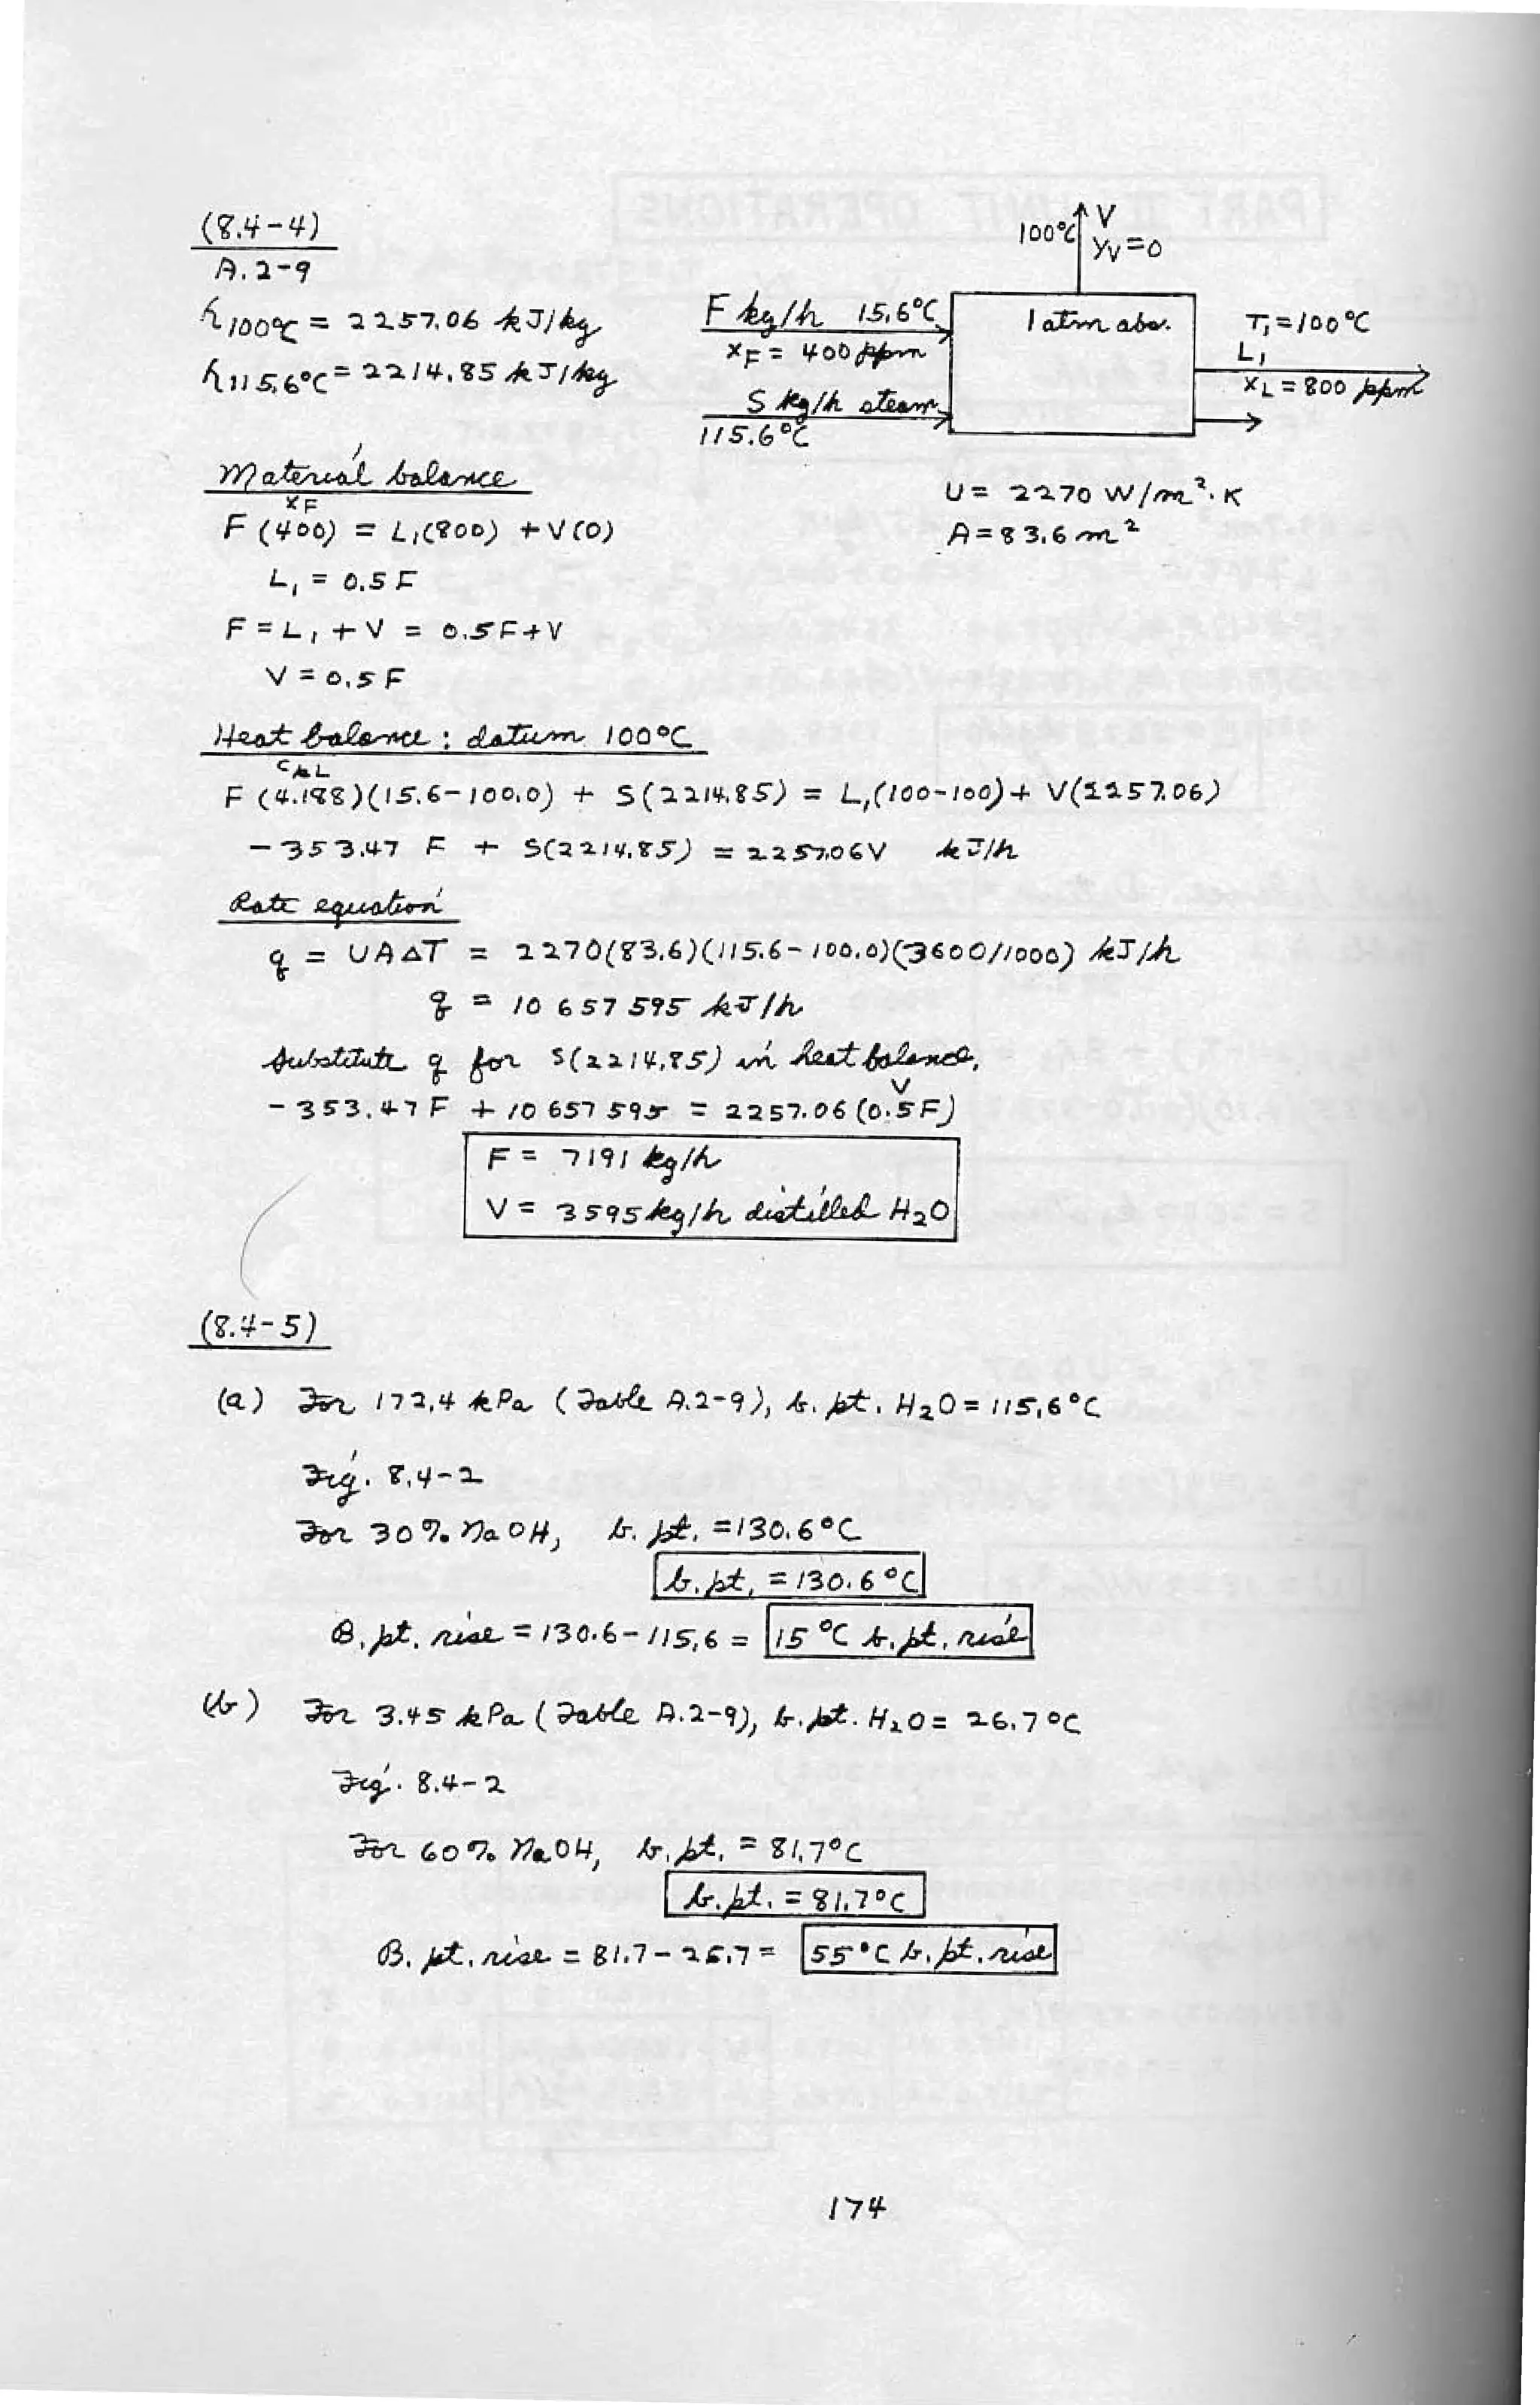 (8.4-4)
A.2-9
h100°C = 2257.06 kJ/kg
h115.6°C = 2214.85 kJ/kg
100°C V
yV = 0
F kg/h 15.6°C
xF = 400 ppm
S kg/h steam
115.6°C
1 atm abs.
T1 = 100°C
L1
xL = 800 ppm
U = 2270 W/m²·K
A = 83.6 m²
Material balance
xF
F (400) = L1(800) + V(0)
L1 = 0.5 F
F = L1 + V = 0.5F + V
V = 0.5 F
Heat balance : datum 100°C
cpL
F (4.188)(15.6-100.0) + S(2214.85) = L1(100-100) + V(2257.06)
-353.47 F + S(2214.85) = 2257.06V kJ/h
Rate equation
q = UAΔT = 2270(83.6)(115.6-100.0)(3600/1000) kJ/h
q = 10 657 595 kJ/h
Substitute q for S(2214.85) in heat balance,
V
-353.47 F + 10 657 595 = 2257.06 (0.5F)
F = 7191 kg/h
V = 3595 kg/h distilled H2O
(8.4-5)
(a) For 172.4 kPa (Table A.2-9), b. pt. H2O = 115.6°C
Fig. 8.4-2
For 30% NaOH, b. pt. = 130.6°C
b. pt. = 130.6°C
B. pt. rise = 130.6 - 115.6 = 15°C b. pt. rise
(b) For 3.45 kPa (Table A.2-9), b. pt. H2O = 26.7°C
Fig. 8.4-2
For 60% NaOH, b. pt. = 81.7°C
b. pt. = 81.7°C
B. pt. rise = 81.7 - 26.7 = 55°C b. pt. rise
174